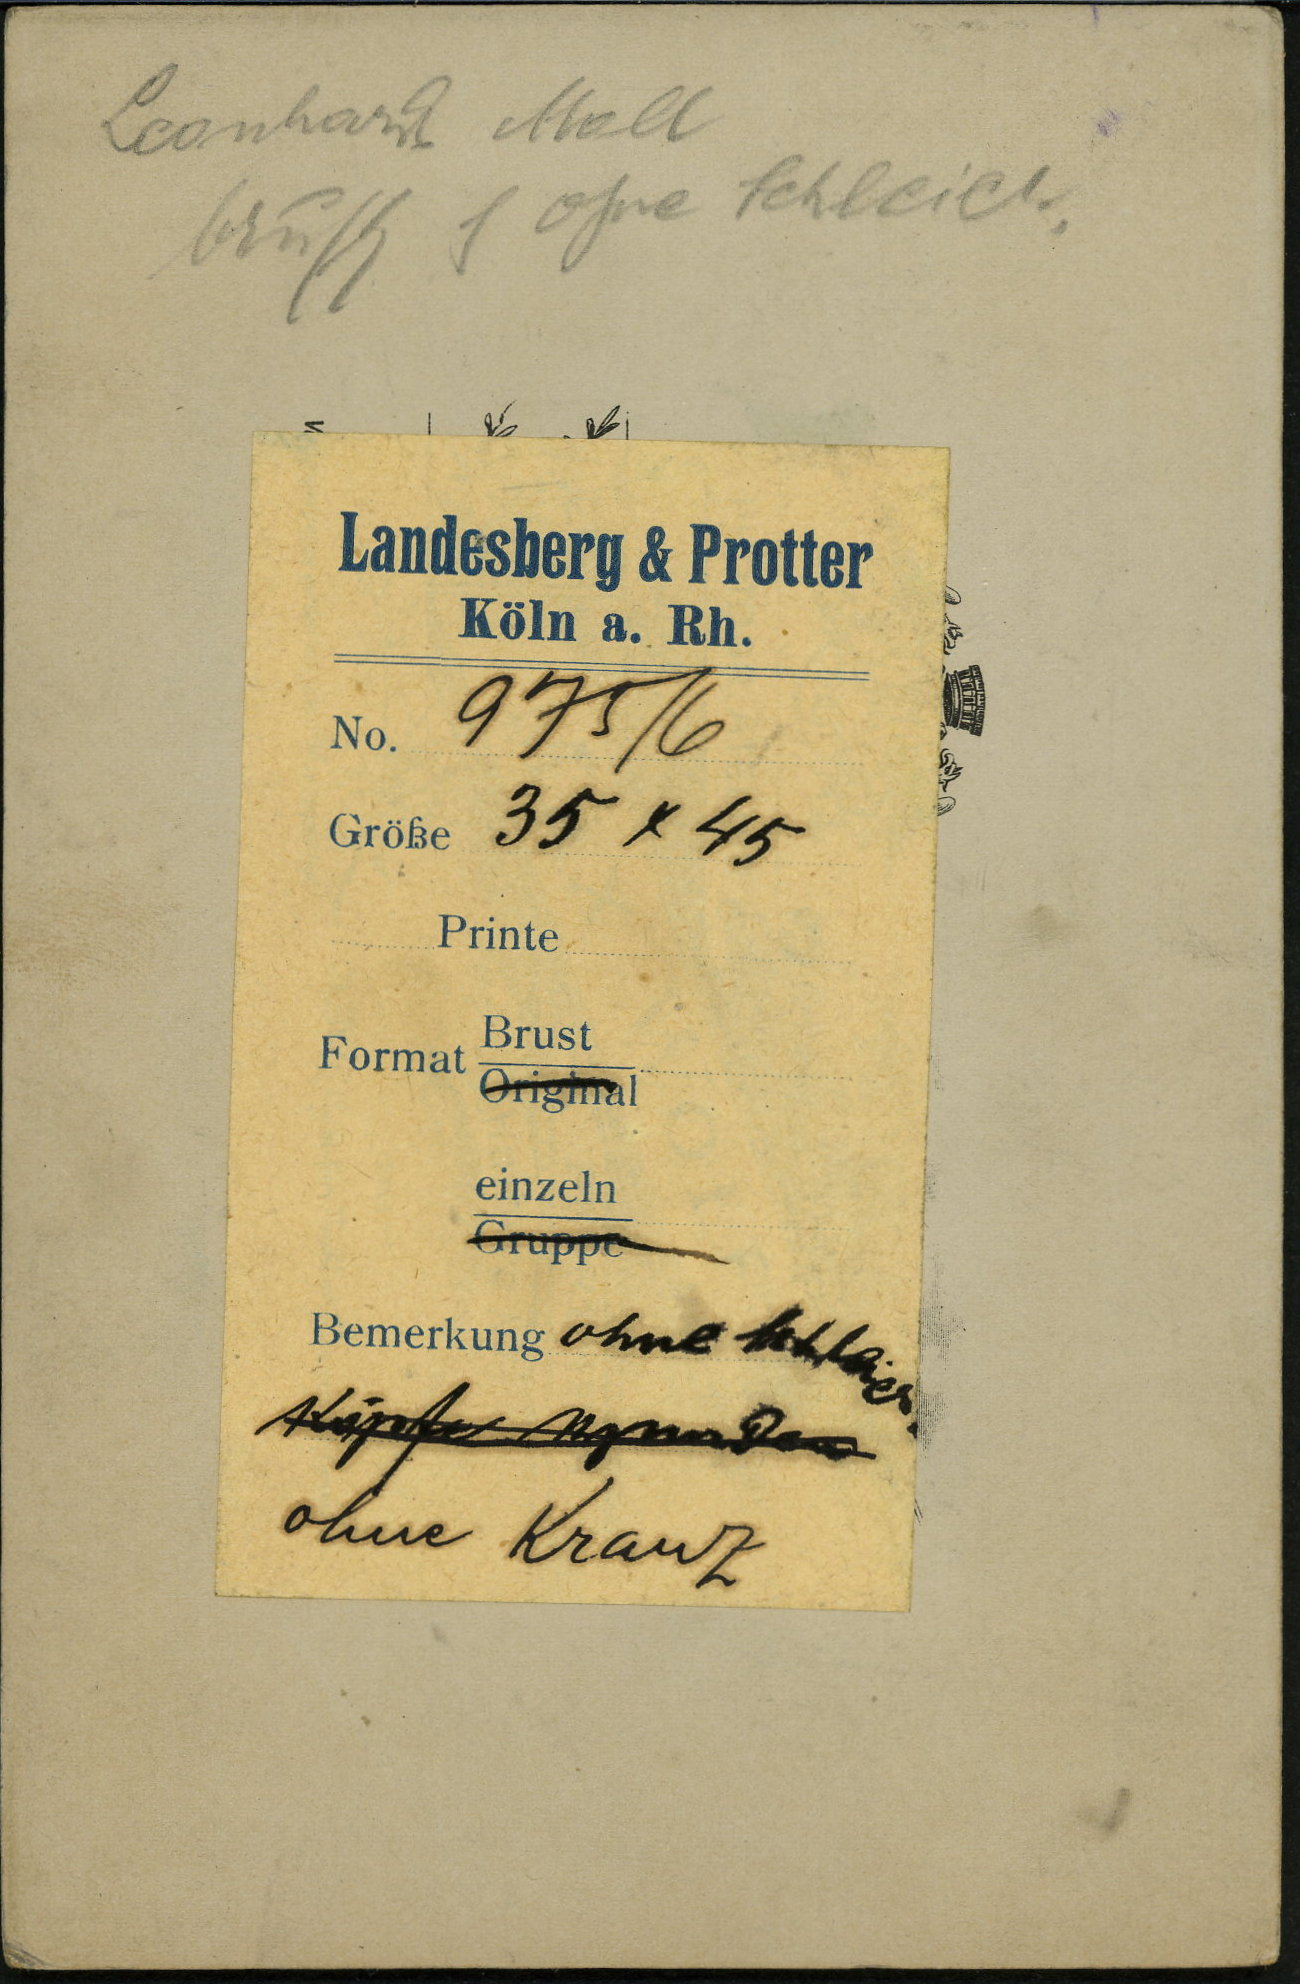 Leonhard Moll
Brust f ohne Schleier.
Landesberg & Protter
Köln a. Rh.
No. 975/6
Größe 35 x 45
Printe
Format Brust
Original
einzeln
Gruppe
Bemerkung ohne Schleier.
Köpfe
ohne Kranz